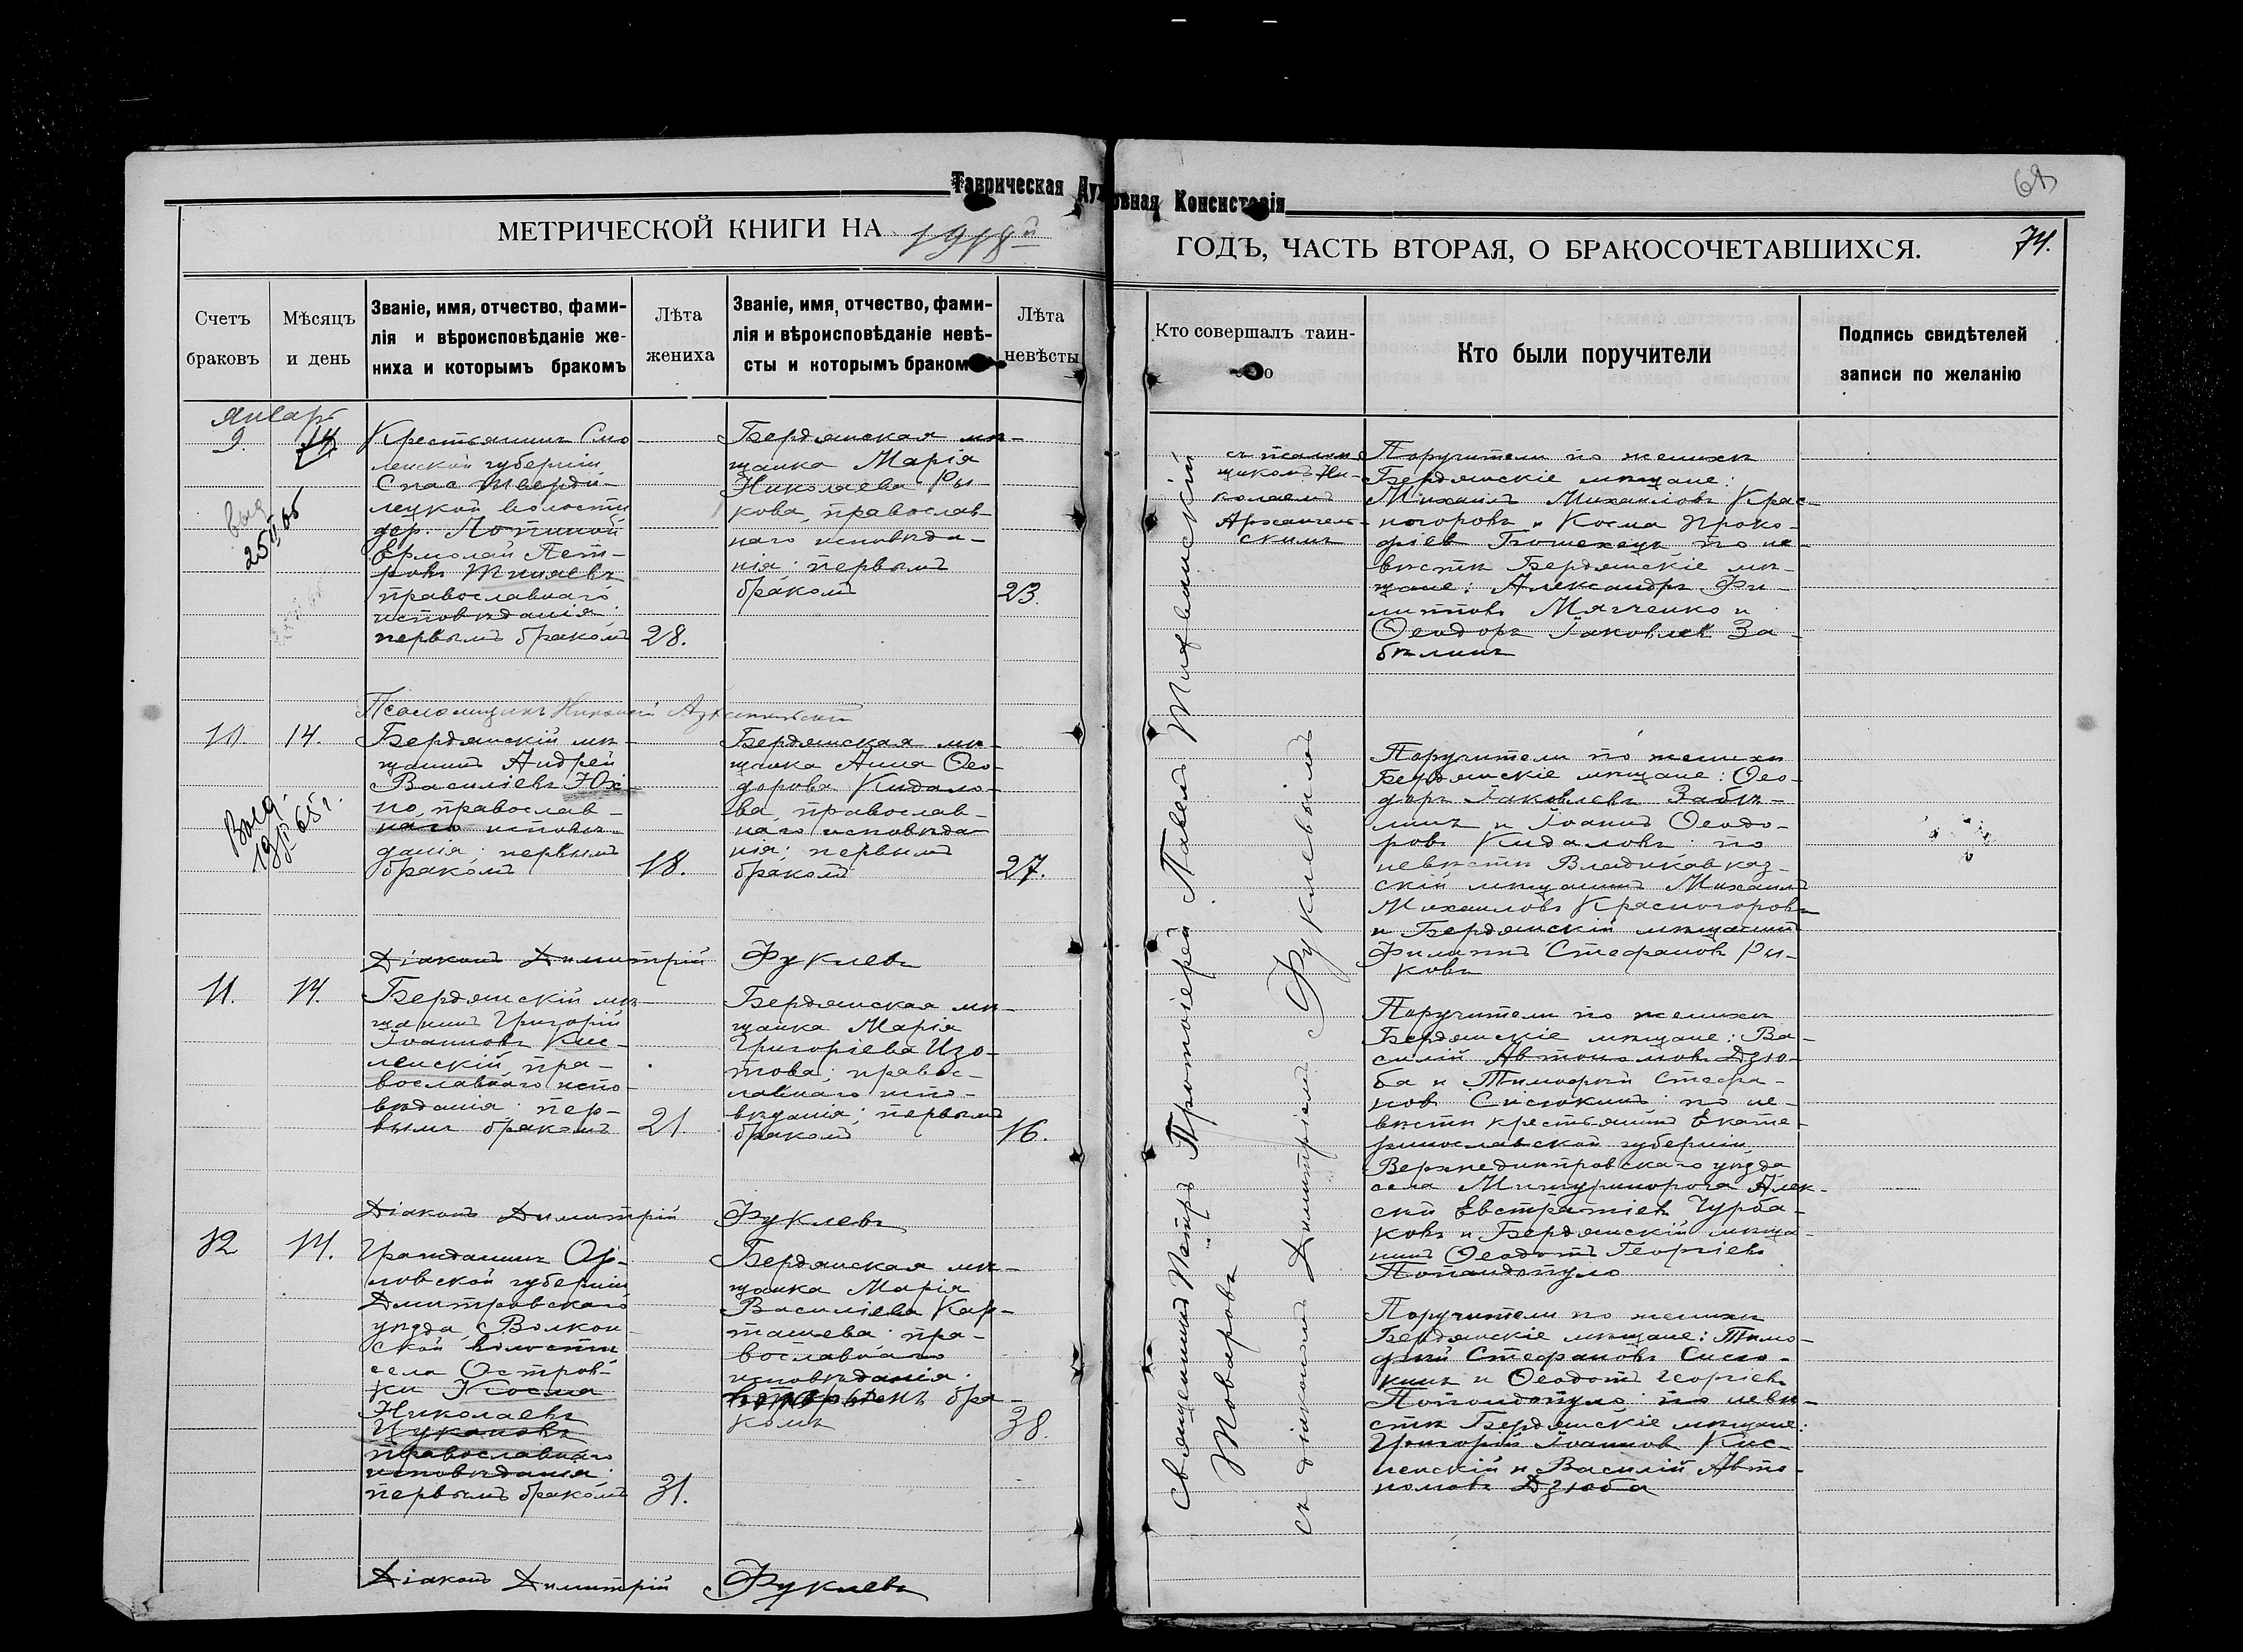 Таврическая Духовная Консисторія
68
МЕТРИЧЕСКОЙ КНИГИ НА 1918й
ГОДЪ, ЧАСТЬ ВТОРАЯ, О БРАКОСОЧЕТАВШИХСЯ.
74.
Счетъ
браковъ
Мѣсяцъ
и день
Званіе, имя, отчество, фами-
лія и вѣроисповѣданіе же-
ниха и которымъ бракомъ
Лѣта
жениха
Званіе, имя, отчество, фами-
лія и вѣроисповѣданіе невѣ-
сты и которымъ бракомъ
Лѣта
невѣсты
Кто совершалъ таин-
о
Кто были поручители
Подпись свидѣтелей
записи по желанію
Январь
9.
14
Крестьянинъ Смо-
ленской губерніи,
Спас Тверди-
лецкой волости
дер. Лопиной
Ермолай Пет-
ровъ Тиняевъ
православнаго
исповѣданія;
первымъ бракомъ
28.
Бердянская мѣ-
щанка Марія
Николаева Ры-
кова, православ-
наго исповѣда-
нія; первымъ
бракомъ
23.
выд
25 II 65
съ псалом-
щикомъ Ни-
колаемъ
Архангель-
скимъ
Поручители по женихѣ
Бердянскіе мѣщане:
Михаилъ Михаиловъ Крас-
ногоровъ и Косма Проко-
фіев Пошехецъ, по не-
вѣстѣ Бердянскіе мѣ-
щане: Александръ Фи-
липповъ Мягченко и
Ѳеодоръ Іаковлев За-
бѣлинъ
Псаломщикъ Николай Архангельскій
10.
14.
Бердянскій мѣ-
щанинъ Андрей
Василіевъ Юх-
но, православ-
наго исповѣ-
данія; первымъ
бракомъ
18.
Бердянская мѣ-
щанка Анна Ѳео-
дорова Кидало-
ва, православ-
наго исповѣда-
нія; первымъ
бракомъ
27.
Выд.
19 II 65 г.
Поручители по женихѣ
Бердянскіе мѣщане: Ѳео-
доръ Іаковлевъ Забѣ-
линъ и Іоаннъ Ѳеодо-
ровъ Кидаловъ; по
невѣстѣ Владикавказ-
скій мѣщанинъ Михаилъ
Михаиловъ Красногоровъ
и Бердянскій мѣщанинъ
Филиппъ Стефановъ Ры-
ковъ
Діаконъ Димитрій Фуклевъ
11.
14.
Бердянскій мѣ-
щанинъ Григорій
Іоанновъ Кис-
ленскій, пра-
вославнаго испо-
вѣданія; пер-
вымъ бракомъ
21.
Бердянская мѣ-
щанка Марія
Григоріева Изо-
това; правос-
лавнаго испо-
вѣданія; первымъ
бракомъ
16.
Поручители по женихѣ
Бердянскіе мѣщане: Ва-
силій Автономовъ Дзю-
ба и Тимофей Стефа-
новъ Сисюкинъ; по не-
вѣстѣ крестьянинъ Екате-
ринославской губерніи,
Верхнеднѣпровскаго уѣзда
села Мишуринорога Алек-
сѣй Евстратіевъ Чурба-
ковъ и Бердянскій мѣща-
нинъ Ѳеодотъ Георгіевъ
Попандопуло
Діаконъ Димитрій Фуклевъ
12
14.
Гражданинъ Ор-
ловской губерніи
Дмитровскаго
уѣзда, Волкон-
ской волости
села Островъ-
ки Косма
Николаевъ
Цукановъ
православнаго
исповѣданія;
первымъ бракомъ
31.
Бердянская мѣ-
щанка Марія
Василіева Кар-
ташева; пра-
вославнаго
исповѣданія;
вторымъ бра-
комъ
38.
Поручители по женихѣ
Бердянскіе мѣщане: Тимо-
фей Стефановъ Сисю-
кинъ и Ѳеодотъ Георгіевъ
Попондопуло; по невѣ-
стѣ Бердянскіе мѣщане:
Григорій Іоаннов Кис-
ленскій и Василій Авто-
номовъ Дзюба
Діаконъ Димитрій Фуклевъ
Протоіерей Павелъ
Священникъ Петръ
Товаровъ
съ діакономъ Димитріемъ Фуклевымъ